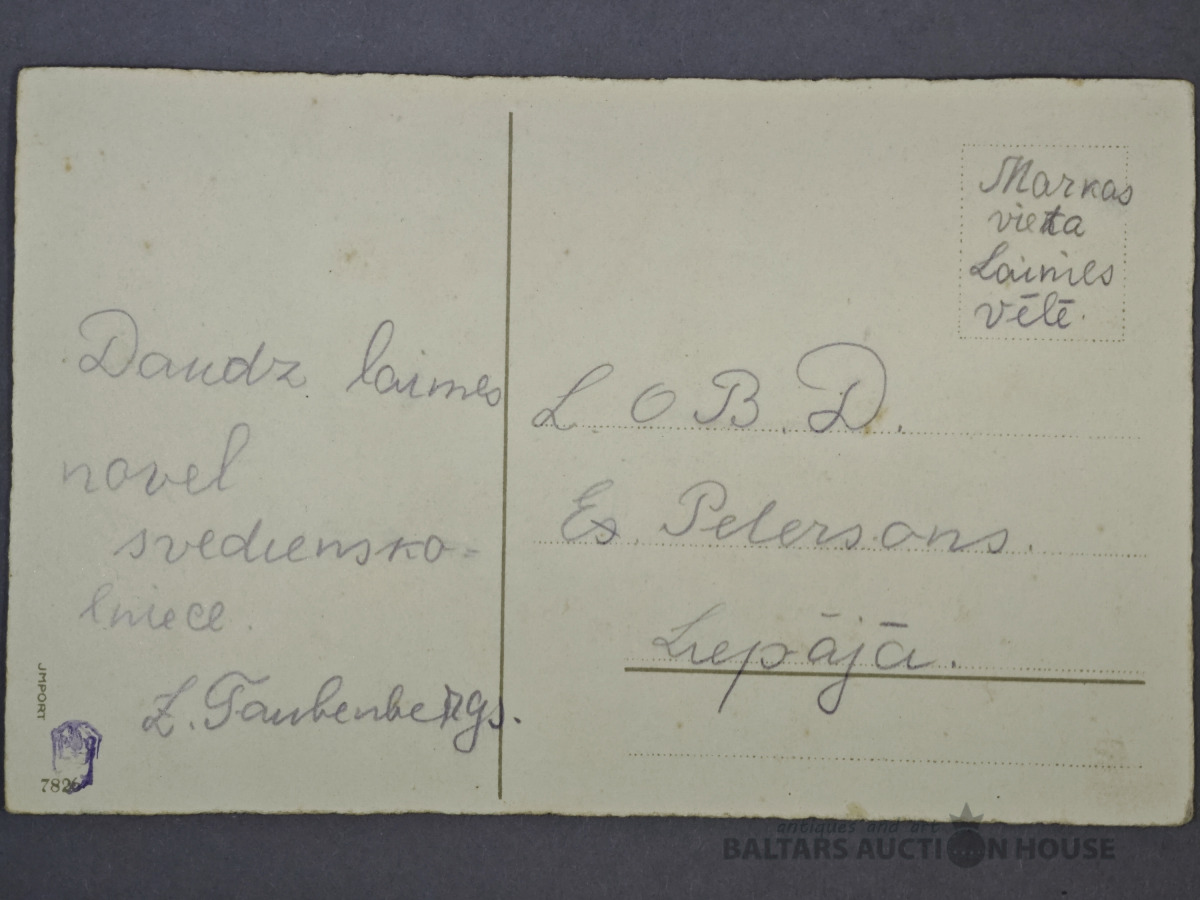 Daudz laimes
novel
svediensko-
lniece.
Z. Taubenbergs.
Markas
vieta
Laimes
vēlē.
L. O B. D.
Es. Petersons.
Liepājā.
JMPORT
7826
antiques and art
BALTARS AUCTION HOUSE